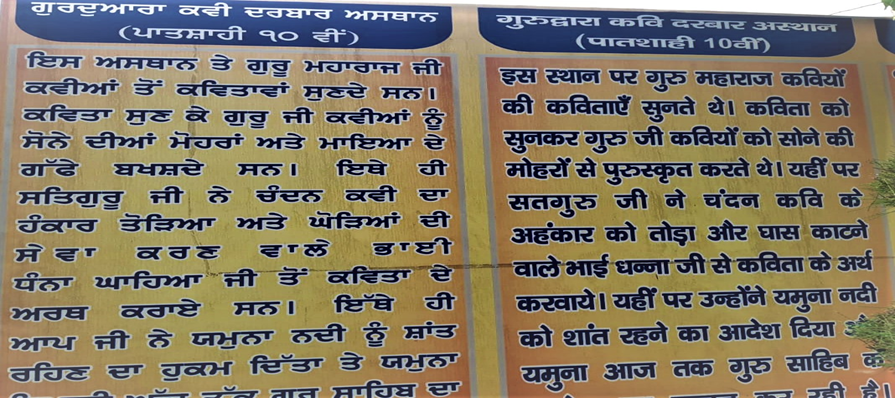 ਗੁਰਦੁਆਰਾ ਕਵੀ ਦਰਬਾਰ ਅਸਥਾਨ
(ਪਾਤਸ਼ਾਹੀ ੧੦ ਵੀਂ)
ਇਸ ਅਸਥਾਨ ਤੇ ਗੁਰੂ ਮਹਾਰਾਜ ਜੀ
ਕਵੀਆਂ ਤੋਂ ਕਵਿਤਾਵਾਂ ਸੁਣਦੇ ਸਨ।
ਕਵਿਤਾ ਸੁਣ ਕੇ ਗੁਰੂ ਜੀ ਕਵੀਆਂ ਨੂੰ
ਸੋਨੇ ਦੀਆਂ ਮੋਹਰਾਂ ਅਤੇ ਮਾਇਆ ਦੇ
ਗੱਫੇ ਬਖਸ਼ਦੇ ਸਨ। ਇਥੇ ਹੀ
ਸਤਿਗੁਰੂ ਜੀ ਨੇ ਚੰਦਨ ਕਵੀ ਦਾ
ਹੰਕਾਰ ਤੋੜਿਆ ਅਤੇ ਘੋੜਿਆਂ ਦੀ
ਸੇਵਾ ਕਰਣ ਵਾਲੇ ਭਾਈ
ਧੰਨਾ ਘਾਹਿਆ ਜੀ ਤੋਂ ਕਵਿਤਾ ਦੇ
ਅਰਥ ਕਰਾਏ ਸਨ। ਇੱਥੇ ਹੀ
ਆਪ ਜੀ ਨੇ ਯਮੁਨਾ ਨਦੀ ਨੂੰ ਸ਼ਾਂਤ
ਰਹਿਣ ਦਾ ਹੁਕਮ ਦਿੱਤਾ ਤੇ ਯਮੁਨਾ
ਗੁਰੂ ਸਾਹਿਬ ਦਾ
गुरुद्वारा कवि दरवार अस्थान
(पातशाही 10वीं)
इस स्थान पर गुरु महाराज कवियों
की कविताएँ सुनते थे। कविता को
सुनकर गुरु जी कवियों को सोने की
मोहरों से पुरुस्कृत करते थे। यहीं पर
सतगुरु जी ने चंदन कवि के
अहंकार को तोड़ा और घास काटने
वाले भाई धन्ना जी से कविता के अर्थ
करवाये। यहीं पर उन्होंने यमुना नदी
को शांत रहने का आदेश दिया
यमुना आज तक गुरु साहिब
कर रही है।